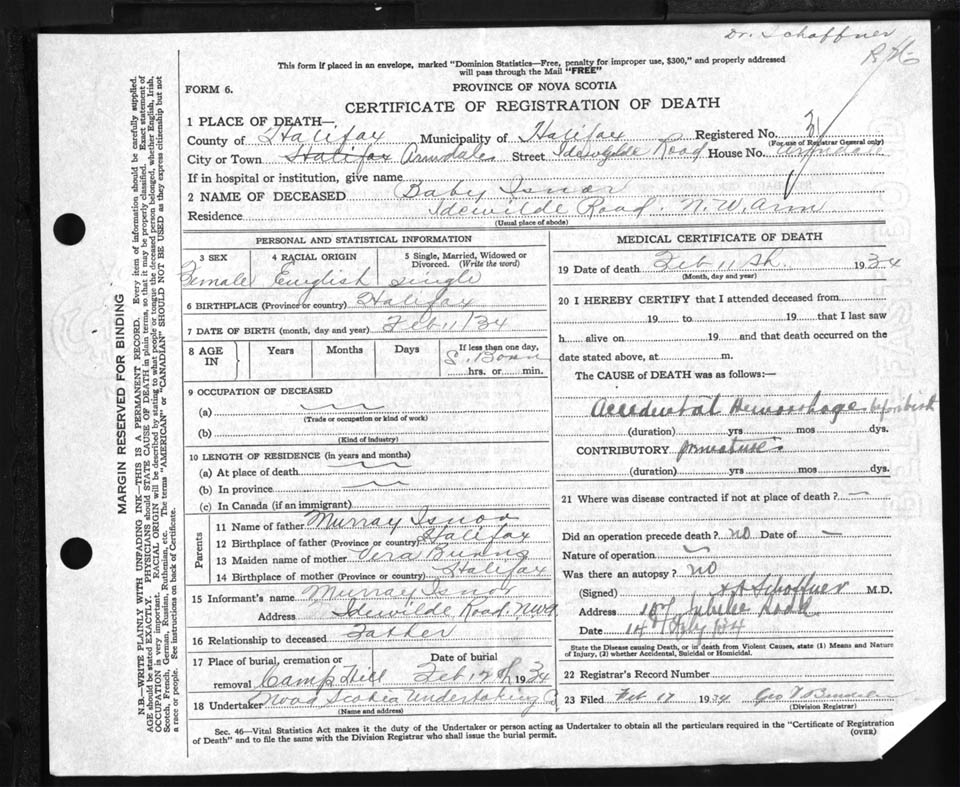 Dr. Schaffner
This form if placed in an envelope, marked "Dominion Statistics—Free, penalty for improper use, $300," and properly addressed
will pass through the Mail "FREE"
FORM 6.
PROVINCE OF NOVA SCOTIA
CERTIFICATE OF REGISTRATION OF DEATH
1 PLACE OF DEATH—
County of Halifax Municipality of Halifax Registered No. 31
(For use of Registrar General only)
City or Town Halifax Armdale Street Idewylde Road House No. Armdale
If in hospital or institution, give name
2 NAME OF DECEASED Baby Isnor
Residence Idewilde Road. N.W. Arm
(Usual place of abode)
PERSONAL AND STATISTICAL INFORMATION
3 SEX 4 RACIAL ORIGIN 5 Single, Married, Widowed or
Divorced. (Write the word)
Female English Single
6 BIRTHPLACE (Province or country) Halifax
7 DATE OF BIRTH (month, day and year) Feb 11/34
8 AGE IN Years Months Days If less than one day,
S. Born
hrs. or min.
9 OCCUPATION OF DECEASED
(a)
(Trade or occupation or kind of work)
(b)
(Kind of Industry)
10 LENGTH OF RESIDENCE (in years and months)
(a) At place of death
(b) In province
(c) In Canada (if an immigrant)
Parents
11 Name of father Murray Isnor
12 Birthplace of father (Province or country) Halifax
13 Maiden name of mother Vera Bunns
14 Birthplace of mother (Province or country) Halifax
15 Informant's name Murray Isnor
Address Idewilde Road, NWA
16 Relationship to deceased Father
17 Place of burial, cremation or Date of burial
removal Camp Hill Feb 12th 1934
18 Undertaker Nova Scotia Undertaking Co
(Name and address)
MEDICAL CERTIFICATE OF DEATH
19 Date of death Feb 11th. 1934
(Month, day and year)
20 I HEREBY CERTIFY that I attended deceased from
19 to 19 that I last saw
h alive on 19 and that death occurred on the
date stated above, at m.
The CAUSE of DEATH was as follows:—
Accidental Hemorrhage before birth
(duration) yrs mos dys.
CONTRIBUTORY premature
(duration) yrs mos dys.
21 Where was disease contracted if not at place of death? —
Did an operation precede death? no Date of —
Nature of operation
Was there an autopsy? no
(Signed) Schaffner M.D.
Address 187 Jubilee Road
Date 14 34
State the Disease causing Death, or in death from Violent Causes, state (1) Means and
Nature of Injury, (2) whether Accidental, Suicidal or Homicidal.
22 Registrar's Record Number
23 Filed Feb 17 1934 Geo
(Division Registrar)
Sec. 46—Vital Statistics Act makes it the duty of the Undertaker or person acting as Undertaker to obtain all the particulars required in the "Certificate of Registration
of Death" and to file the same with the Division Registrar who shall issue the burial permit. (OVER)
MARGIN RESERVED FOR BINDING
N.B.—WRITE PLAINLY WITH UNFADING INK—THIS IS A PERMANENT RECORD. Every item of information should be carefully supplied.
AGE should be stated EXACTLY. PHYSICIANS should STATE CAUSE OF DEATH in plain terms, so that it may be properly classified. Exact statement of
OCCUPATION is very important. RACIAL ORIGIN will be described by stating to what people or tongue the deceased person belonged, whether English, Irish,
Scotch, French, German, Russian, Ruthenian, etc. The terms "AMERICAN" or "CANADIAN" SHOULD NOT BE USED as they express citizenship but not
a race or people. See instructions on back of Certificate.